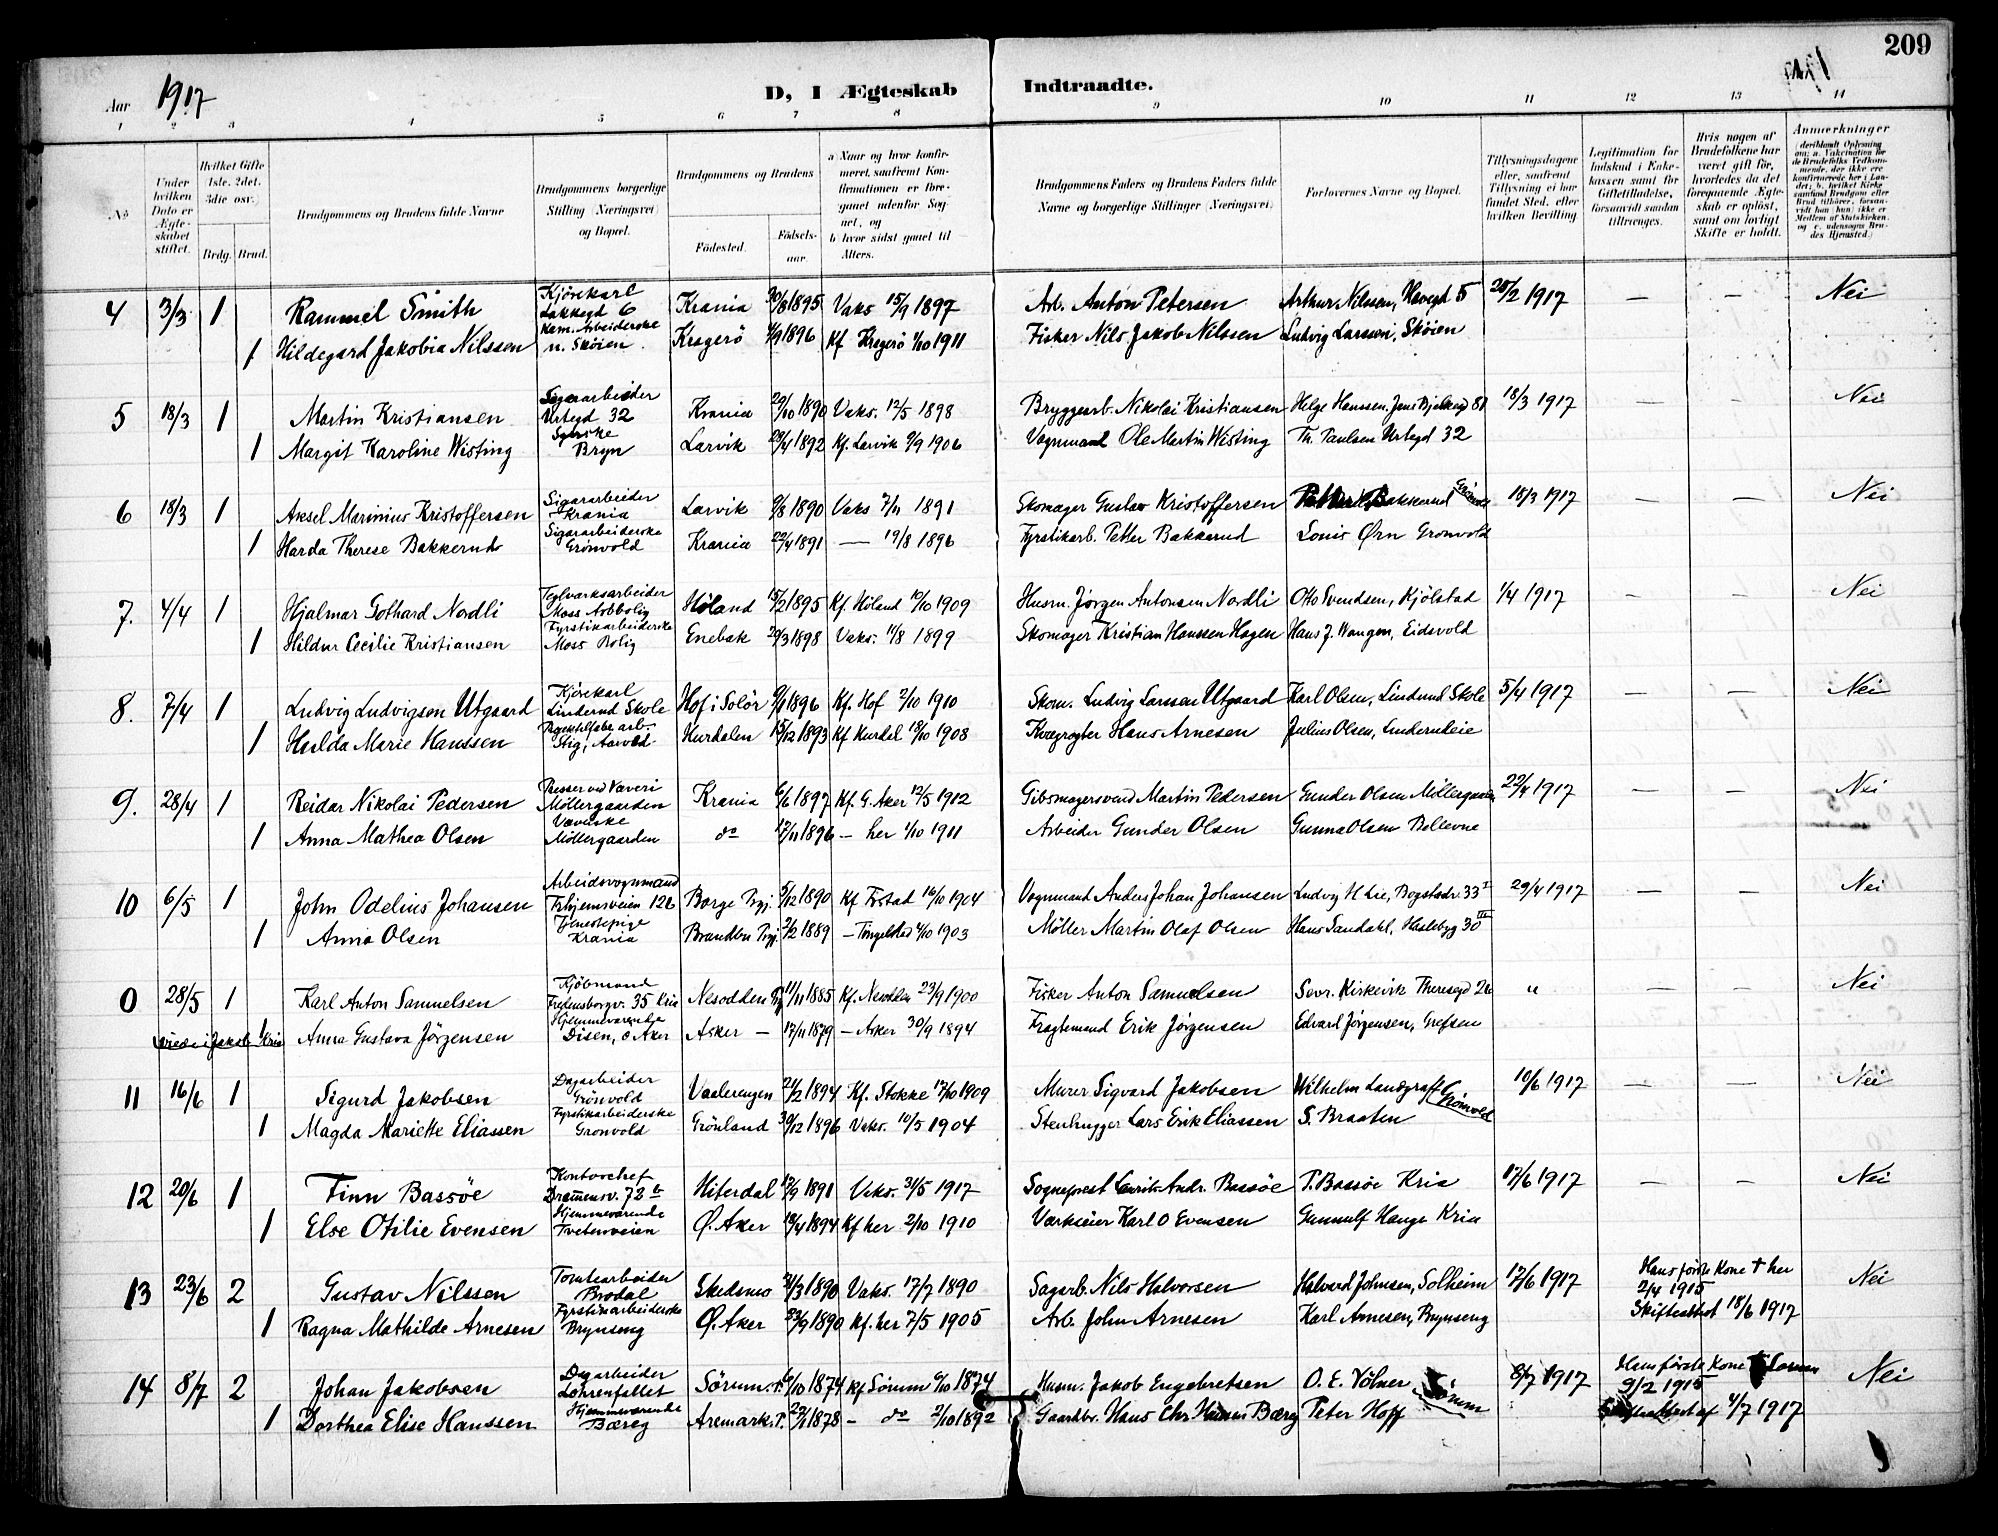 209
Aar 1917 D, I Ægteskab Indtraadte.
1 2 3 4 5 6 7 8 9 10 11 12 13 14
No
Under hvilken Dato er Ægteskabet stiftet.
Hvilket Gifte (1ste. 2det. 3die osv.)
Brdg. Brud.
Brudgommens og Brudens fulde Navne
Brudgommens borgerlige Stilling (Næringsvei) og Bopæl.
Brudgommens og Brudens
Födested. Födselsaar.
a) Naar og hvor konfirmeret, saafremt Konfirmationen er foregaaet udenfor Sognet, og
b) hvor sidst gaaet til Alters.
Brudgommens Faders og Brudens Faders fulde Navne og borgerlige Stillinger (Næringsvei)
Forlovernes Navne og Bopæl.
Tillysningsdagene eller, saafremt Tillysning ei har fundet Sted, efter hvilken Bevilling.
Legitimation for Indskud i Enkekassen samt for Giftetilladelse, forsaavidt saadan tiltrænges.
Hvis nogen af Brudefolkene har været gift før, hvorledes da det foregaaende Ægteskab er oplöst, samt om lovligt Skifte er holdt.
Anmerkninger
4 3/3 1 Rammel Smith Kjörekarl Lakkegd 6 Krania 30/8 1895 Vaks 15/9 1897 Arb. Anton Petersen Arthur Nilssen, Havegd 5 25/2 1917 — — Nei
1 Hildegard Jakobia Nilssen n. Skøien Kragerö 4/9 1896 Kf Kragerö 1/10 1911 Fisker Nils Jakob Nilssen Ludvig Larssen, Skøien
5 18/3 1 Martin Kristiansen Sigararbeider Urtegd 32 Krania 29/10 1890 Vaks. 12/5 1898 Bryggearb. Nikolai Kristiansen Helge Hanssen, Jens Bjelkegd 81 18/3 1917 — — Nei
1 Margit Karoline Wisting Syerske Bryn Larvik 29/4 1892 Kf. Larvik 9/9 1906 Vognmand Ole Martin Wisting Th. Paulsen Urtegd 32
6 18/3 1 Aksel Marinius Kristoffersen Sigararbeider Krania Larvik 9/8 1890 Vaks 7/11 1891 Skomager Gustav Kristoffersen Bakkerud 18/3 1917 — — Nei
1 Harda Therese Bakkerud Sigararbeiderske Grönvold Krania 29/4 1891 — 19/8 1896 Fyrstikarb. Petter Bakkerud Louis Ørn Gronvold
7. 4/4 1 Hjalmar Gothard Nordli Teglværksarbeider Höland 15/2 1895 Kf. Höland 10/10 1909 Husm. Jørgen Antonsen Nordli Otto Svendsen, Kjölstad 1/4 1917 — — Nei
1 Hildur Cecilie Kristiansen Fyrstikarbeiderske Moss Bolig Enebak 20/3 1898 Vaks. 11/8 1899 Skomager Kristian Hanssen Hagen Hans J. Wangen, Eidsvold
8. 7/4 1 Ludvig Ludvigsen Utgaard Kjörekarl Linderud Skole Hof i Solör 9/1 1896 Kf. Hof 2/10 1910 Skom. Ludvig Larssen Utgaard Karl Olsen, Linderud Skole 5/4 1917 — — Nei
1 Hulda Marie Hanssen Stig, Aarvold Hurdalen 15/12 1893 Kf Hurdal 18/10 1908 Kvægrøgter Hans Arnesen Julius Olsen, Linderudeie
9. 28/4 1 Reidar Nikolai Pedersen Presser ved Væveri Möllergaarden Krania 6/6 1897 Kf. G. Aker 12/5 1912 Gibsmagersvend Martin Pedersen Gunder Olsen Möllergaarden 22/4 1917 — — Nei
1 Anna Mathea Olsen Væverske Möllergaarden do 17/11 1896 — her 1/10 1911 Arbeider Gunder Olsen Gunna Olsen Bellevue
10 6/5 1 John Odelius Johansen Arbeidsvognmand Borge Prgj. 5/12 1890 Kf Idstad 16/10 1904 Vognmand Anders Johan Johansen Ludvig H Lie, Bogstadv. 33 I 29/4 1917 — — Nei
1 Anna Olsen Tjenestepige Krania Brandbu Prgj. 2/2 1889 — Tingelstad 4/10 1903 Möller Martin Olaf Olsen Hans Sandahl, Haslebyg 30 III
0 28/5 1 Karl Anton Samuelsen Kjöbmand Fredensborgv. 35 Kria Nesodden 11/11 1885 Kf. Nesodden 23/9 1900 Fisker Anton Samuelsen Sevr. Kirkevik Theresegd 2 " — — Nei
viede i Jakob Kria 1 Anna Gustava Jörgensen Hjemmeværende Disen, Ø Aker Asker — 17/11 1879 — Asker 30/9 1894 Fragtemand Erik Jørgensen Edvard Jørgensen, Grefsen
11 16/6 1 Sigurd Jakobsen Dagarbeider Grönvold Vaalerengen 21/2 1894 Kf. Stokke 17/10 1909 Murer Sigvard Jakobsen Wilhelm Landgraff Grönvold 10/6 1917 — — Nei
1 Magda Mariette Eliassen Fyrstikarbeiderske Gronvold Grönland 30/12 1896 Vaks. 10/5 1904 Stenhugger Lars Erik Eliassen S. Braaten
12 20/6 1 Finn Bassöe Kontorchef Drammensv. 72 b Hiterdal 12/9 1891 Vaks. 31/5 1917 Sogneprest Andr. Bassöe P. Bassöe Kria 17/6 1917 — — Nei
1 Else Otilie Evensen Hjemmeværende Tvetenveien Ø. Aker 18/4 1894 Kf her 2/10 1910 Værkseier Karl O Evensen Gunnulf Hauge Kria
13 23/6 2 Gustav Nilssen Tomtearbeider Brodal Skedsmo 31/3 1890 Vaks. 17/7 1890 Sagarb. Nils Halvorsen Halvard Johnsen, Solheim 17/6 1917 Hans første Kone † her 2/4 1915 Skifteattest 18/6 1917 Nei
1 Ragna Mathilde Arnesen Fyrstikarbeiderske Brynseng Ø. Aker 23/9 1890 Kf. her 7/5 1905 Arb. John Arnesen Karl Arnesen, Brynseng
14 8/7 2 Johan Jakobsen Dagarbeider Lohrenfallet Sörum. P. 6/10 1874 Kf Sörum 9/10 1874 Husm. Jakob Engebretsen O. E. Völner 8/7 1917 Hans første Kone † 9/2 1915 4/7 1917 Nei
1 Dorthea Elise Hanssen Hjemmeværende Bæreg Aremark. P. 22/1 1878 — do 2/10 1892 Gaardbr. Hans Chr Hansen Bæreg Peter Hoff